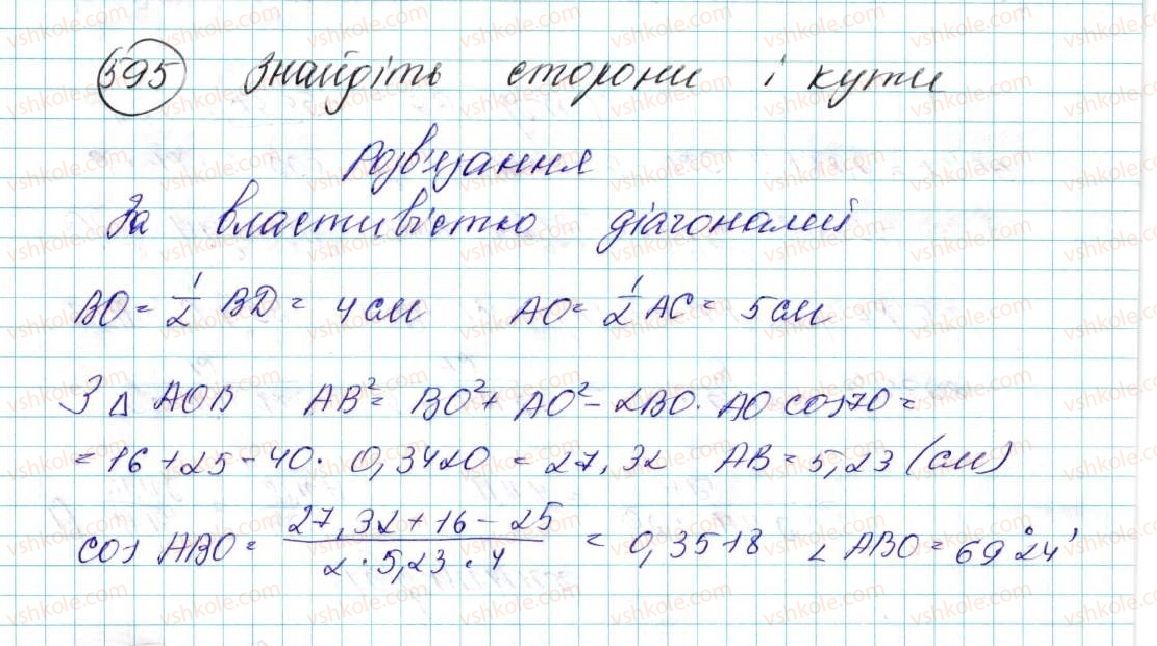 595 Знайдіть сторони і кути
Розв'язання
За властивістю діагоналей
BO = 1/2 BD = 4 см AO = 1/2 AC = 5 см
З Δ AOB AB² = BO² + AO² - 2BO · AO cos70 =
= 16 + 25 - 40 · 0,3420 = 27,32 AB = 5,23 (см)
cos ABO = (27,32 + 16 - 25)/(2 · 5,23 · 4) = 0,3518 ∠ ABO = 69°24'